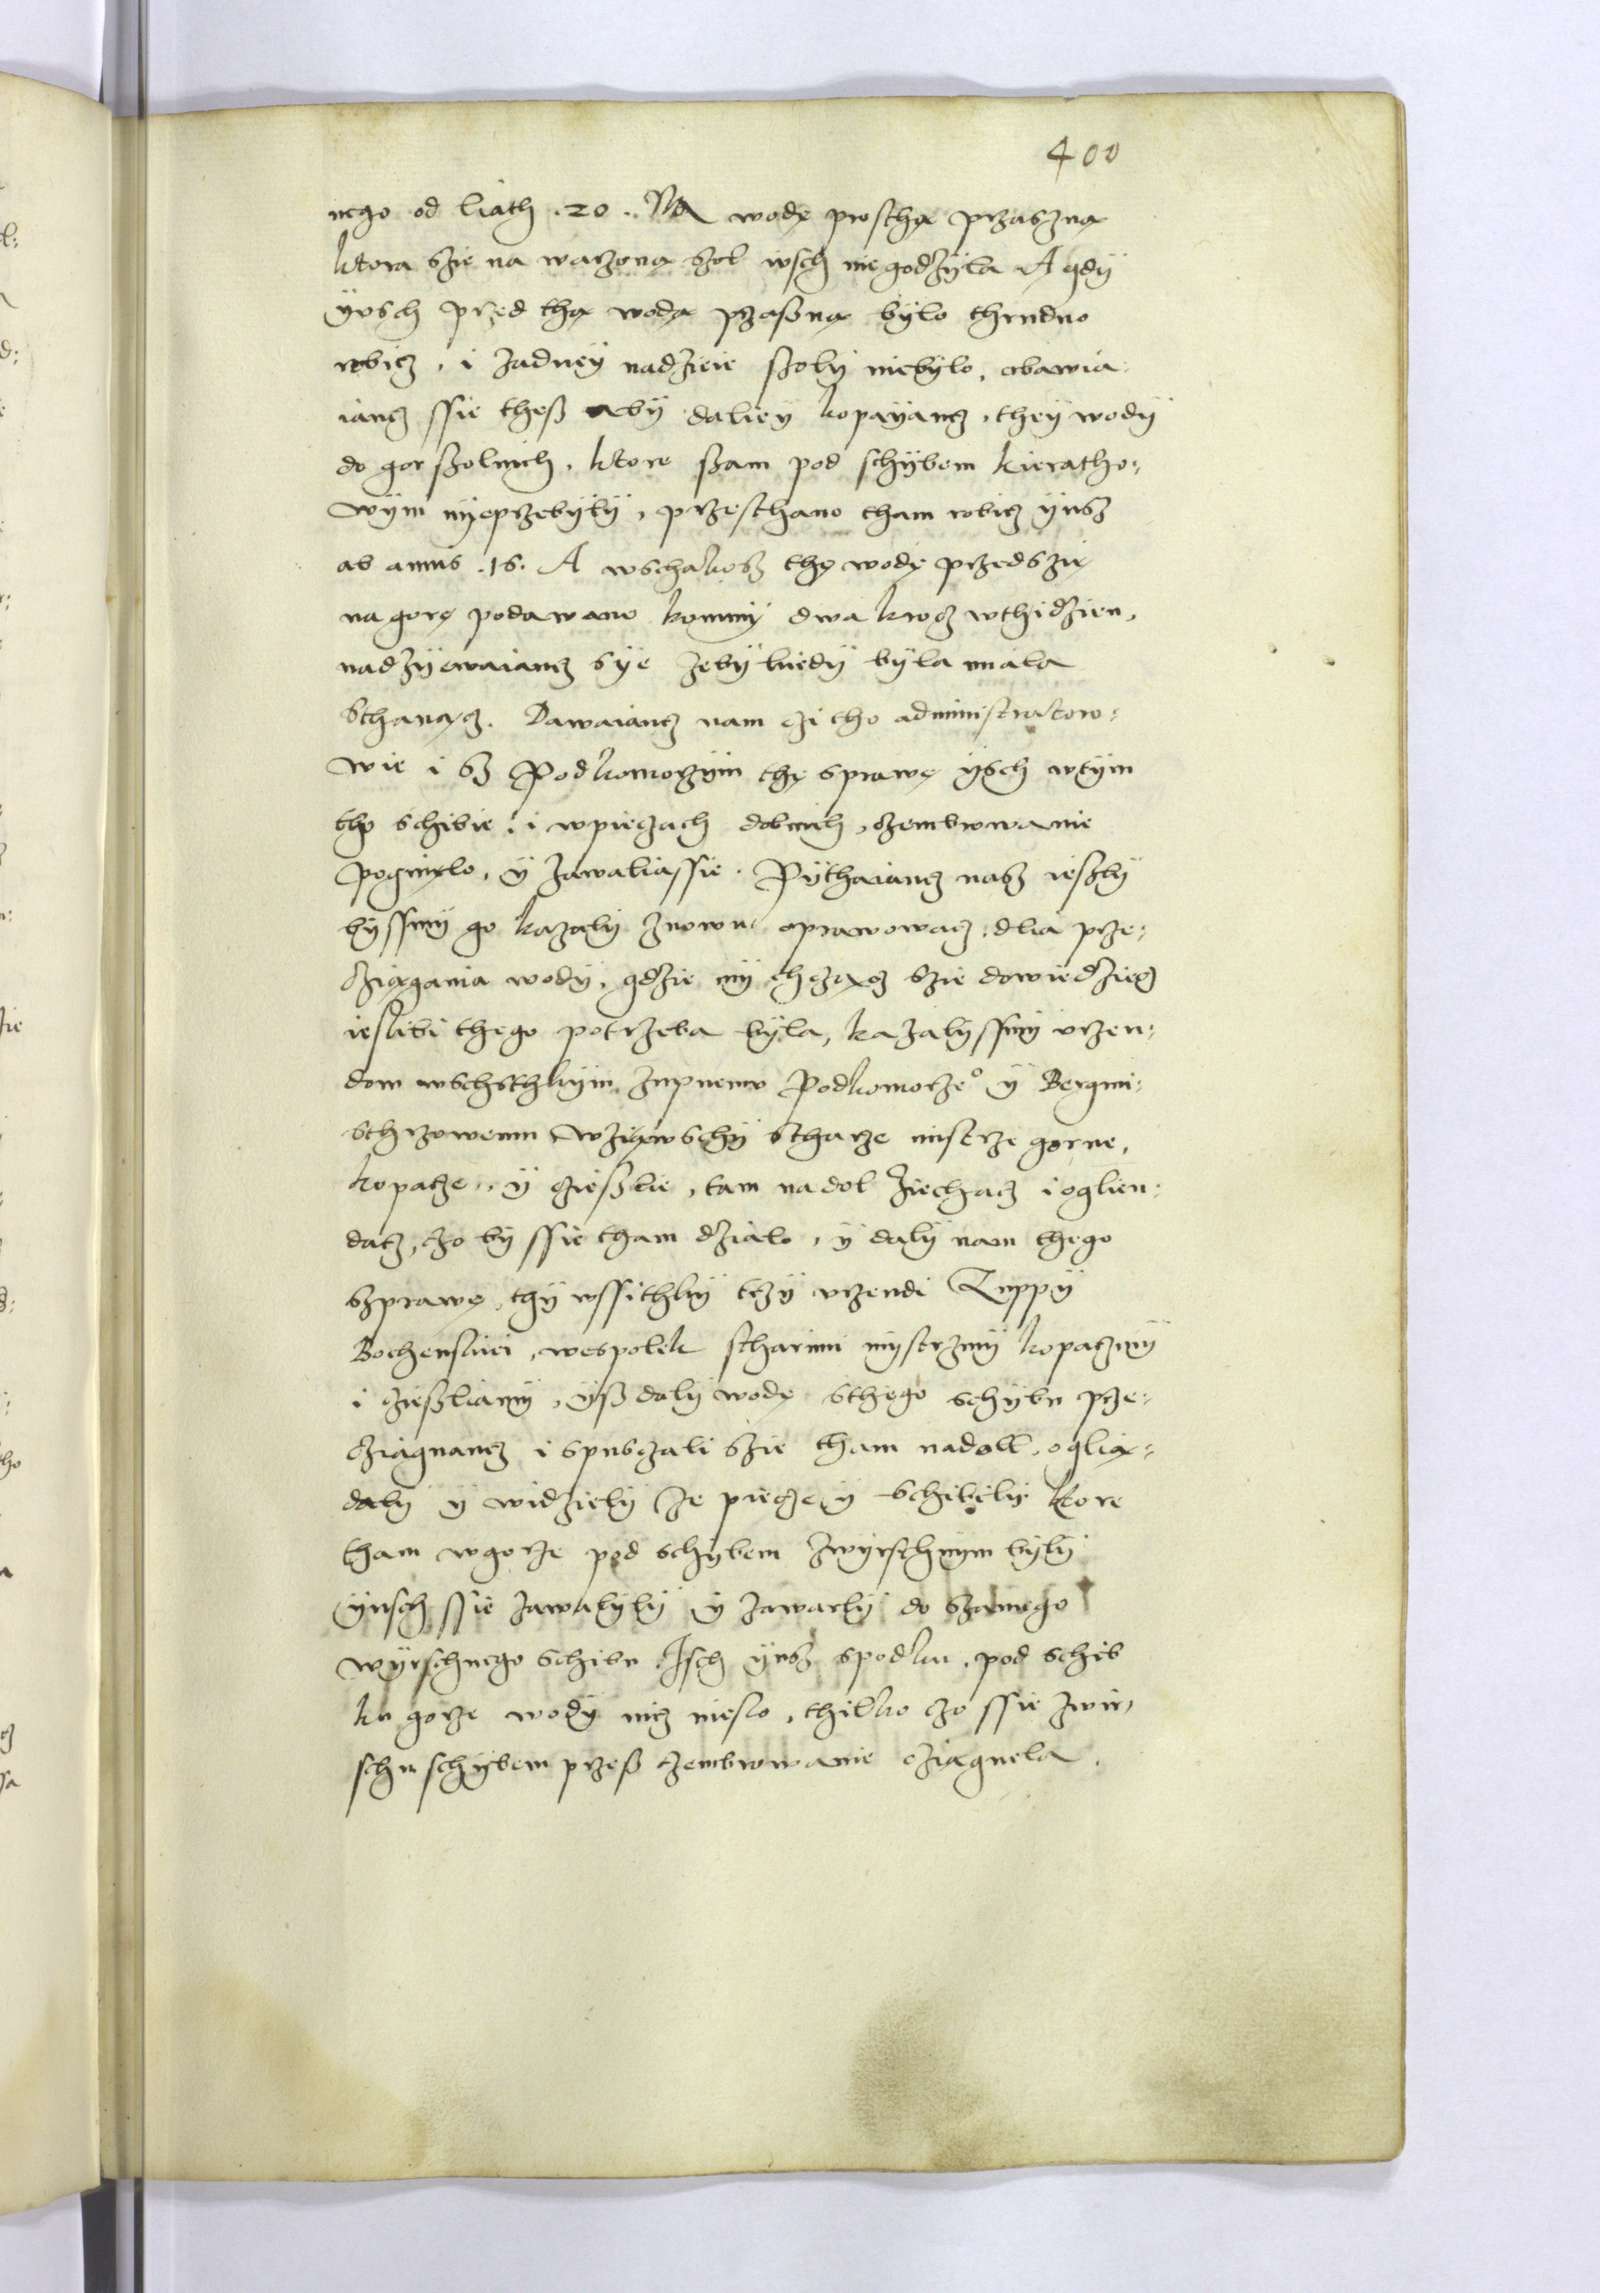 400
nego od liath .20. Na wodę prosthą przaszną
ktora szie na warzoną szol iusch nie godzyla A gdy
yusch przed thą wodą przasną bylo thrudno
robicz, i zadney nadzieie szoly niebylo, obawia-
iancz ssie thesz aby daliey kopayancz, they wody
do gor szolnich, ktore szam pod schybem kieratho-
wym nyeprzebyly, przesthano tham robicz yusz
ab annis .16. A wschakosz thę wodę przedszię
na gorę podawano konmy dwa krocz wthidzien,
nadzyewaiancz sye zeby kiedy byla miala
sthanącz. Dawaiancz nam czi tho administrator-
wie i sz Podkomorzym thę sprawę ysch wtym
tho schibie i wpieczach dolnich, czembrowanie
poginęlo, y zawaliassie. Pythaiancz nasz ieszly
byssmy go kazaly znowu oprawowacz, dlia prze-
cziągania wody, gdzie my chcząc szie dowiedziecz
ieslibi thego potrzeba byla, kazalyssmy vrzen-
dom wschsthkym zupnemu Podkomorze° y Bergmi-
sthrzowemu wziąwschy stharze mistrze gorne,
kopacze, y czieszlie, tam nadol ziechacz i oglien-
dacz, czo by ssie tham dzialo, y daly nam thego
szprawę, thy wssithky trzy vrzendi Zuppy
Bochenskiei, wespolek stharimi mystrzmy kopaczmy
i czieszliamy, ysz daly wodę sthego schybu prze-
cziągnancz i spusczali szie tham nadoll, oglią-
daly y widziely ze piecze y schibiky ktore
tham wgorze pod schybem zwyrschnym byly
yusch ssie zawalyly y zawarly do szamego
wyrschnego schibu Isch yusz spodku pod schib
ku gorze wody nicz nieslo, thilko czo ssie zwir-
schu schybem przesz czembrowanie cziągnela.